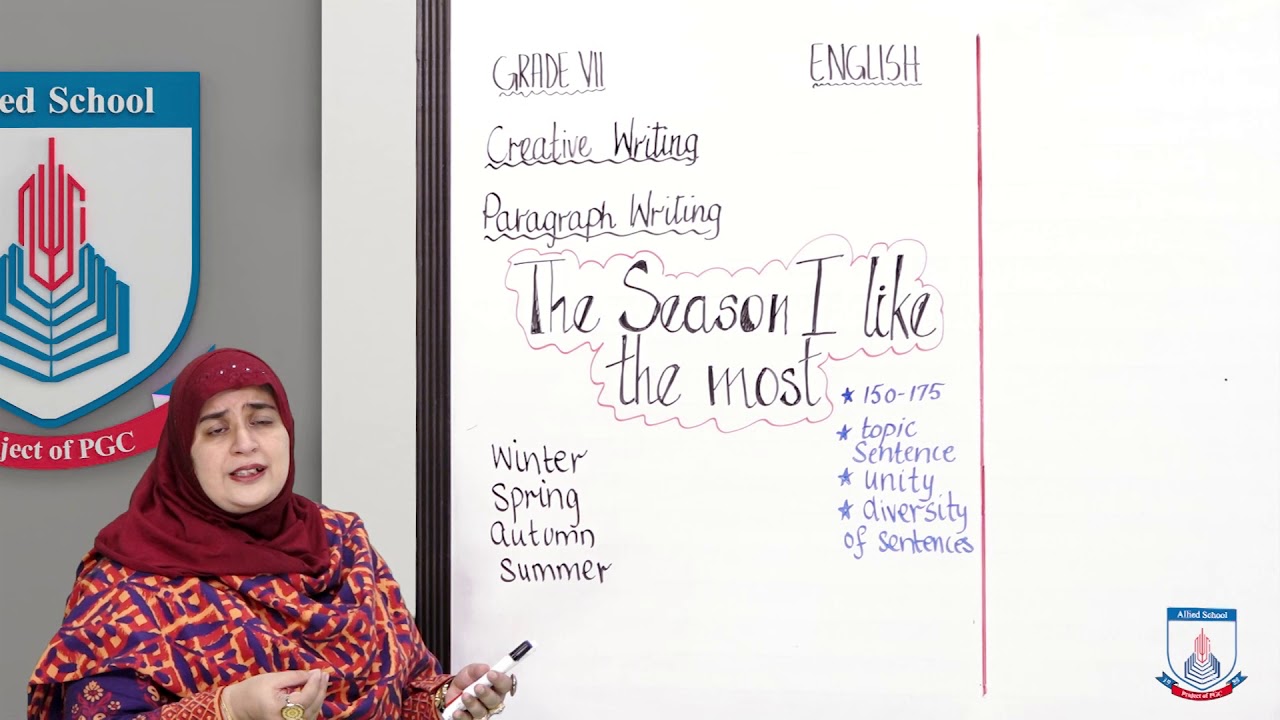 ed School
ject of PGC
GRADE VII
ENGLISH
Creative Writing
Paragraph Writing
The Season I like
the most
★ 150-175
★ topic
Sentence
★ unity
★ diversity
of sentences
Winter
Spring
Autumn
Summer
Allied School
Project of PGC